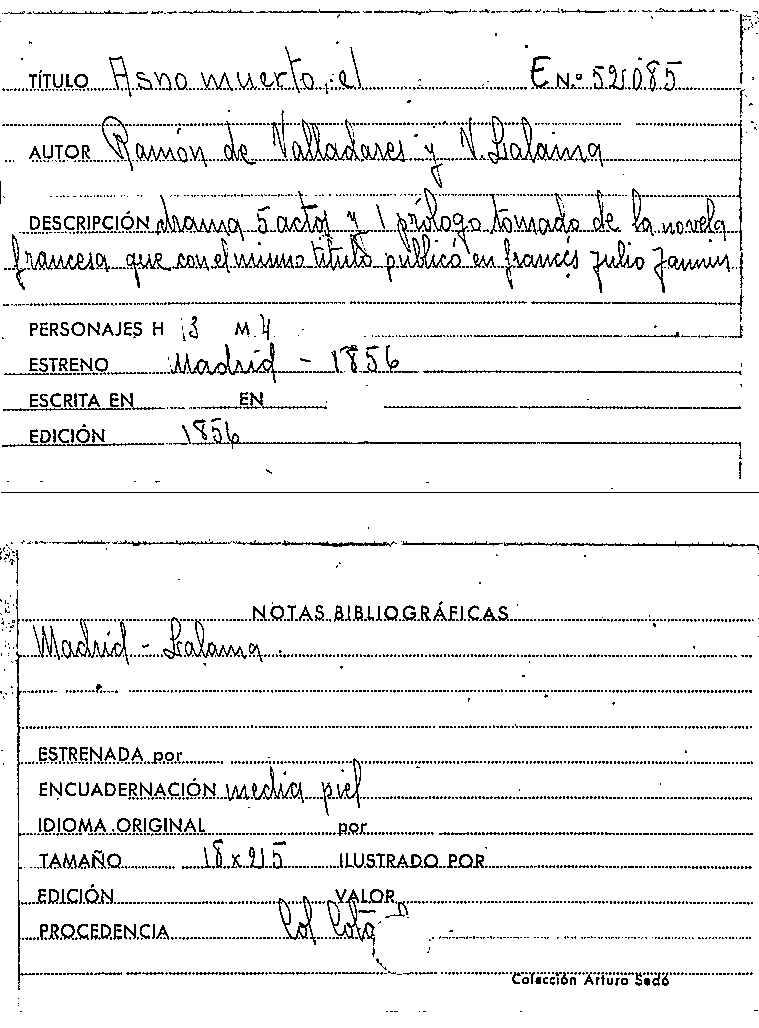 TÍTULO Asno muerto, el E N.º 52085
AUTOR Ramón de Valladares y V. Lalama
DESCRIPCIÓN drama 5 actos y 1 prólogo tomado de la novela
francesa que con el mismo titulo publicó en francés Julio Jannin
PERSONAJES H 13 M 4
ESTRENO Madrid - 1856
ESCRITA EN EN
EDICIÓN 1856
NOTAS BIBLIOGRÁFICAS
Madrid - Lalama.
ESTRENADA por
ENCUADERNACIÓN media piel
IDIOMA ORIGINAL por
TAMAÑO ILUSTRADO POR
EDICIÓN VALOR
PROCEDENCIA Col
Colección Arturo Sedó